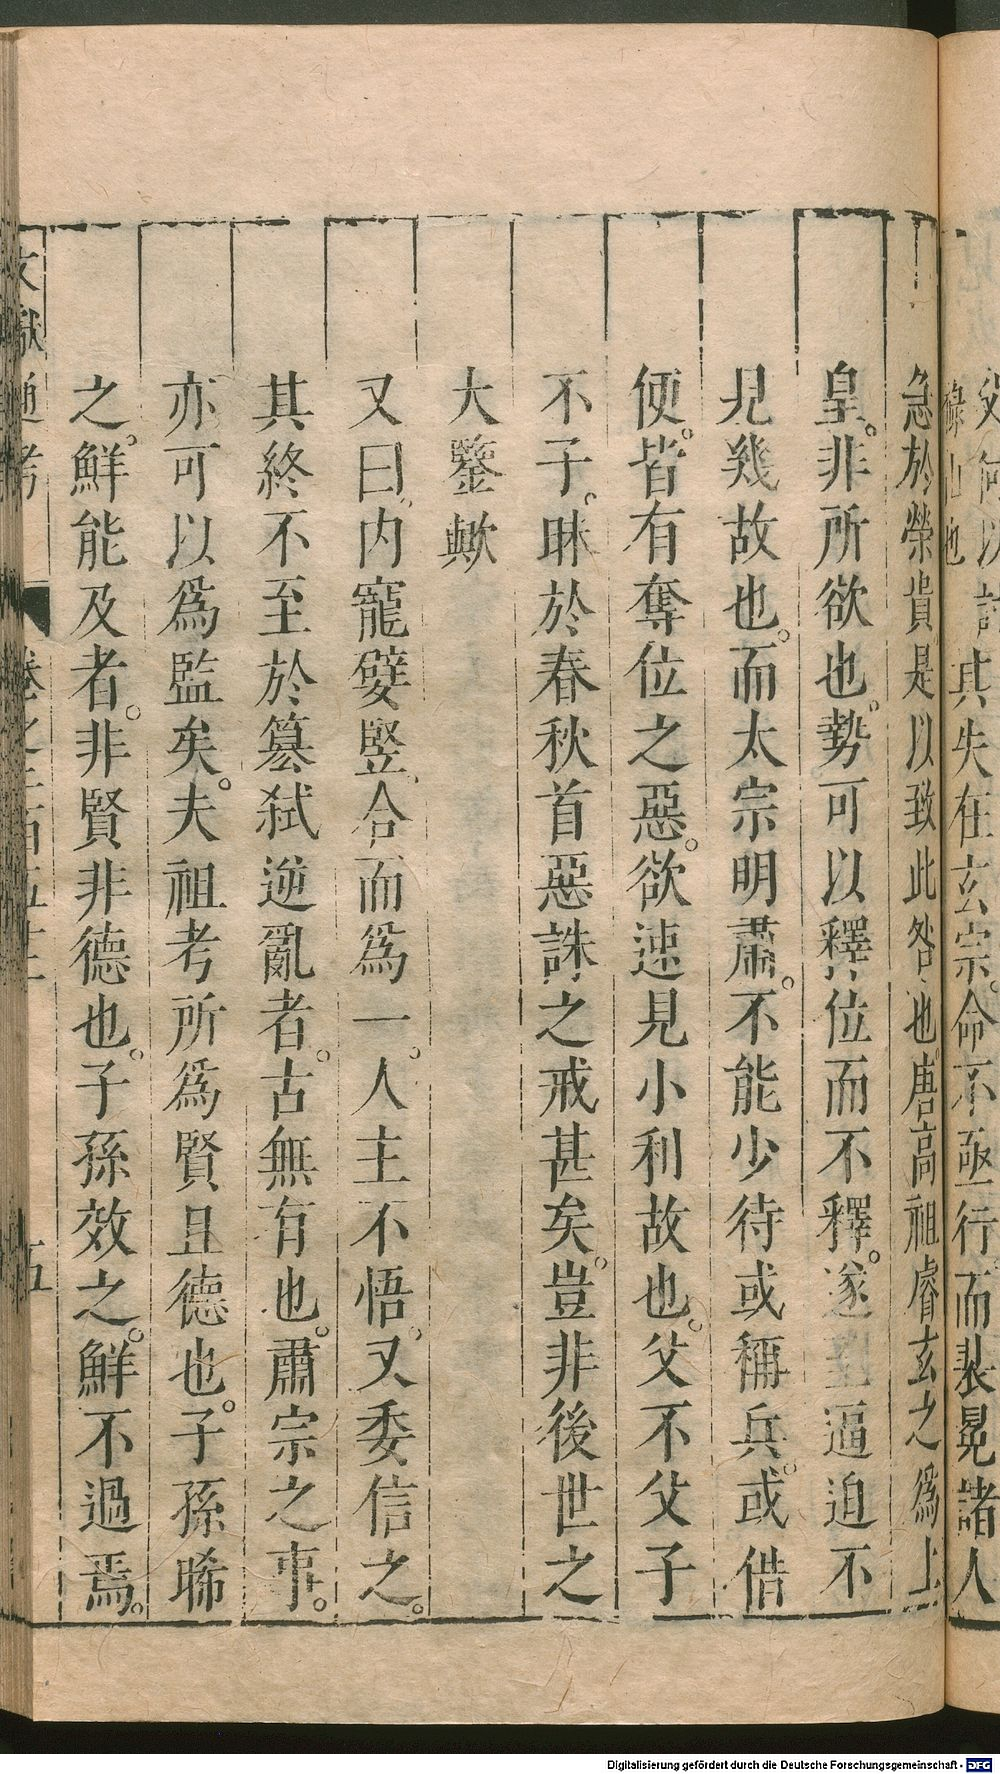 父何以討其失在玄宗命不亟行而裴冕諸人
祿山也
急於榮貴是以致此咎也唐高祖睿玄之爲上
皇非所欲也勢可以釋位而不釋遂至逼迫不
見幾故也而太宗明肅不能少待或稱兵或借
便皆有奪位之惡欲速見小利故也父不父子
不子昧於春秋首惡誅之戒甚矣豈非後世之
大鑒歟
又曰内寵嬖豎合而爲一人主不悟又委信之
其終不至於簒弑逆亂者古無有也肅宗之事
亦可以爲監矣夫祖考所爲賢且德也子孫睎
之鮮能及者非賢非德也子孫效之鮮不過焉
文獻通考 卷之二百五十二 五
Digitalisierung gefördert durch die Deutsche Forschungsgemeinschaft - DFG